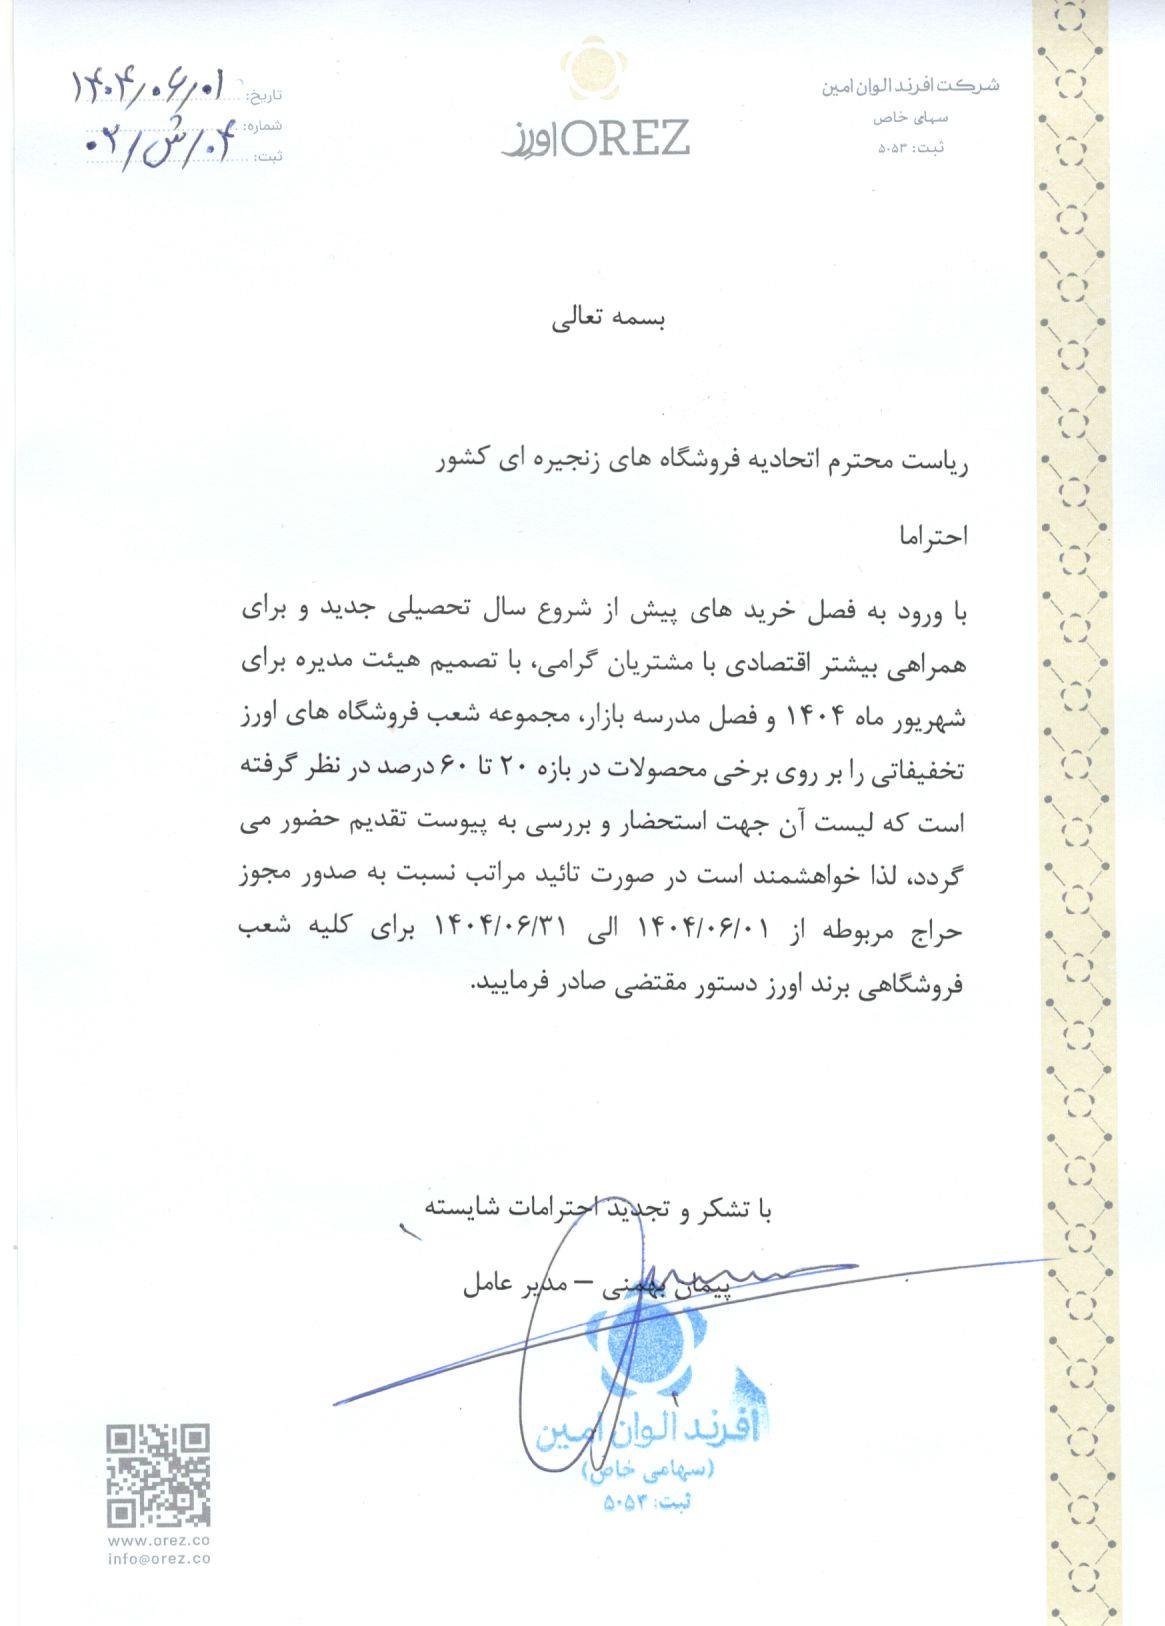 شرکت افرند الوان امین
سهامی خاص
ثبت: ۵۰۵۳
اورز OREZ
تاریخ: ۱۴۰۴/۰۶/۰۱
شماره: ۰۴/ش/۰۲
ثبت:
بسمه تعالی
ریاست محترم اتحادیه فروشگاه های زنجیره ای کشور
احتراما
با ورود به فصل خرید های پیش از شروع سال تحصیلی جدید و برای
همراهی بیشتر اقتصادی با مشتریان گرامی، با تصمیم هیئت مدیره برای
شهریور ماه ۱۴۰۴ و فصل مدرسه بازار، مجموعه شعب فروشگاه های اورز
تخفیفاتی را بر روی برخی محصولات در بازه ۲۰ تا ۶۰ درصد در نظر گرفته
است که لیست آن جهت استحضار و بررسی به پیوست تقدیم حضور می
گردد، لذا خواهشمند است در صورت تائید مراتب نسبت به صدور مجوز
حراج مربوطه از ۱۴۰۴/۰۶/۰۱ الی ۱۴۰۴/۰۶/۳۱ برای کلیه شعب
فروشگاهی برند اورز دستور مقتضی صادر فرمایید.
با تشکر و تجدید احترامات شایسته
پیمان بهمنی – مدیر عامل
افرند الوان امین
(سهامی خاص)
ثبت: ۵۰۵۳
www.orez.co
info@orez.co